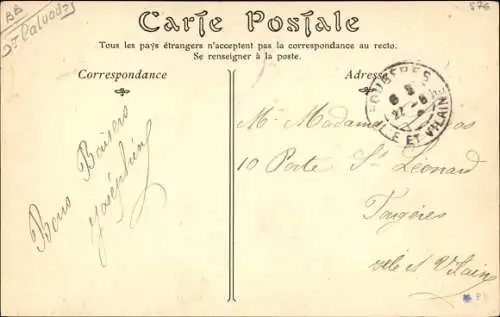 BB
576
Calvados
Carte Postale
Tous les pays étrangers n'acceptent pas la correspondance au recto.
Se renseigner à la poste.
Correspondance
Adresse
FOUGERES
ILLE ET VILAINE
Bons Baisers
Joséphine
Mr Madame
10 Porte St Léonard
Fougères
ille et Vilain